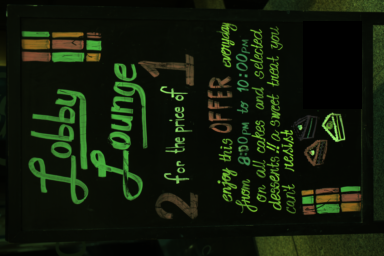 Lobby
Lounge
2 for the price of 1
OFFER
enjoy this everyday
from 8:00PM to 10:00PM
on all cakes and selected
desserts!! a sweet treat you
can't resist